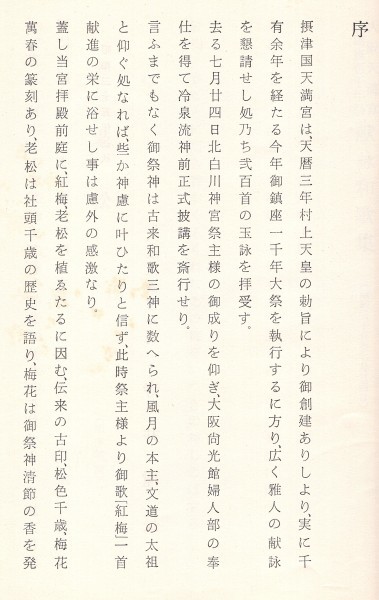 序
摂津国天満宮は、天暦三年村上天皇の勅旨により御創建ありしより、実に千
有余年を経たる今年御鎮座一千年大祭を執行するに方り、広く雅人の献詠
を懇請せし処乃ち弐百首の玉詠を拝受す。
去る七月廿四日北白川神宮祭主様の御成りを仰ぎ、大阪尚光館婦人部の奉
仕を得て冷泉流神前正式披講を斎行せり。
言ふまでもなく御祭神は古来和歌三神に数へられ、風月の本主、文道の太祖
と仰ぐ処なれば、些か神慮に叶ひたりと信ず、此時祭主様より御歌「紅梅」一首
献進の栄に浴せし事は慮外の感激なり。
蓋し当宮拝殿前庭に、紅梅、老松を植ゑたるに因む、伝来の古印、松色千歳、梅花
萬春の篆刻あり、老松は社頭千歳の歴史を語り、梅花は御祭神清節の香を発